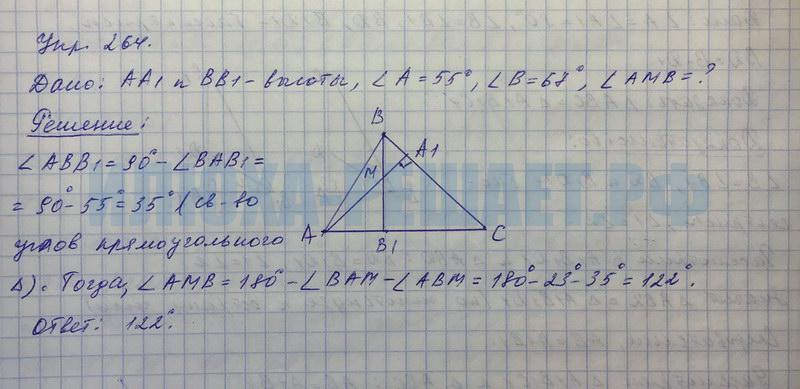 Упр. 264.
Дано: AA1 и BB1 - высоты, ∠A = 55°, ∠B = 67°, ∠AMB = ?
Решение:
∠ABB1 = 90° - ∠BAB1 =
= 90° - 55° = 35° (св-во
углов прямоугольного
Δ). Тогда, ∠AMB = 180° - ∠BAM - ∠ABM = 180° - 23° - 35° = 122°.
Ответ: 122°.
B
A1
M
A
B1
C
КЛАХА-РЕШАЕТ.РФ